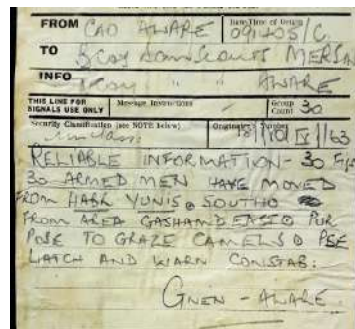 FROM CAO AWARE Date/Time of Origin 091205/C
TO BCOY SOM SCOUTS MERSIN
INFO BCOY " " AWARE
THIS LINE FOR SIGNALS USE ONLY Message Instructions Group Count 30
Security Classification (see NOTE below) Originator's Number
Unclass 181/101 IV 1/63
RELIABLE INFORMATION - 30
30 ARMED MEN HAVE MOVED
FROM HABR YUNIS SOUTH
FROM AREA GASHAMD PUR
POSE TO GRAZE CAMELS PSE
WATCH AND WARN CONSTAB:
GNEN - AWARE